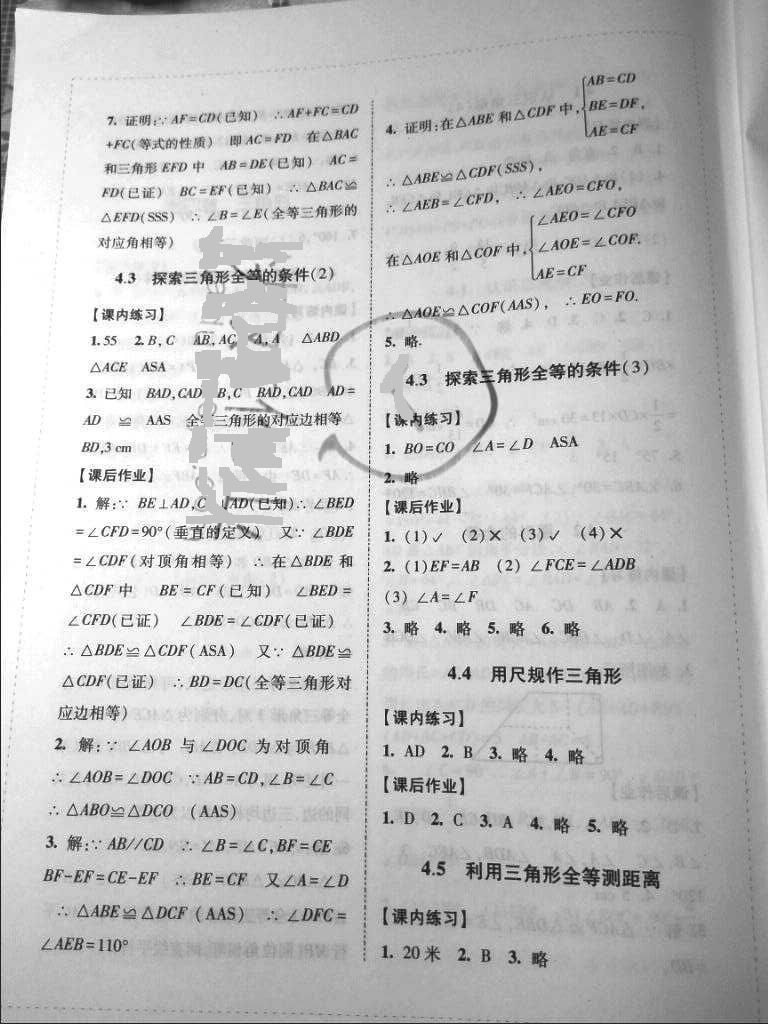 7. 证明:∵AF=CD(已知) ∴AF+FC=CD
+FC(等式的性质) 即AC=FD 在△BAC
和三角形EFD中 AB=DE(已知) AC=
FD(已证) BC=EF(已知) ∴△BAC≌
△EFD(SSS) ∴∠B=∠E(全等三角形的
对应角相等)
4.3 探索三角形全等的条件(2)
【课内练习】
1. 55 2. B,C AB,AC A,A △ABD
△ACE ASA
3. 已知 BAD,CAD B,C BAD,CAD AD=
AD ≌ AAS 全等三角形的对应边相等
BD,3 cm
【课后作业】
1. 解:∵BE⊥AD,C AD(已知)∴∠BED
=∠CFD=90°(垂直的定义) 又∵∠BDE
=∠CDF(对顶角相等) ∴在△BDE和
△CDF中 BE=CF(已知) ∠BED=
∠CFD(已证) ∠BDE=∠CDF(已证)
∴△BDE≌△CDF(ASA) 又∵△BDE≌
△CDF(已证) ∴BD=DC(全等三角形对
应边相等)
2. 解:∵∠AOB与∠DOC为对顶角
∴∠AOB=∠DOC ∵AB=CD,∠B=∠C
∴△ABO≌△DCO (AAS)
3. 解:∵AB//CD ∴∠B=∠C,BF=CE
BF-EF=CE-EF ∴BE=CF 又∠A=∠D
∴△ABE≌△DCF (AAS) ∴∠DFC=
∠AEB=110°
AB=CD
4. 证明:在△ABE和△CDF中, BE=DF,
AE=CF
∴△ABE≌△CDF(SSS),
∴∠AEB=∠CFD, ∴∠AEO=CFO,
∠AEO=∠CFO
在△AOE和△COF中, ∠AOE=∠COF.
AE=CF
∴△AOE≌△COF(AAS), ∴EO=FO.
5. 略.
4.3 探索三角形全等的条件(3)
【课内练习】
1. BO=CO ∠A=∠D ASA
2. 略
【课后作业】
1. (1)✓ (2)× (3)✓ (4)×
2. (1)EF=AB (2)∠FCE=∠ADB
(3)∠A=∠F
3. 略 4. 略 5. 略 6. 略
4.4 用尺规作三角形
【课内练习】
1. AD 2. B 3. 略 4. 略
【课后作业】
1. D 2. C 3. A 4. 略 5. 略
4.5 利用三角形全等测距离
【课内练习】
1. 20米 2. B 3. 略